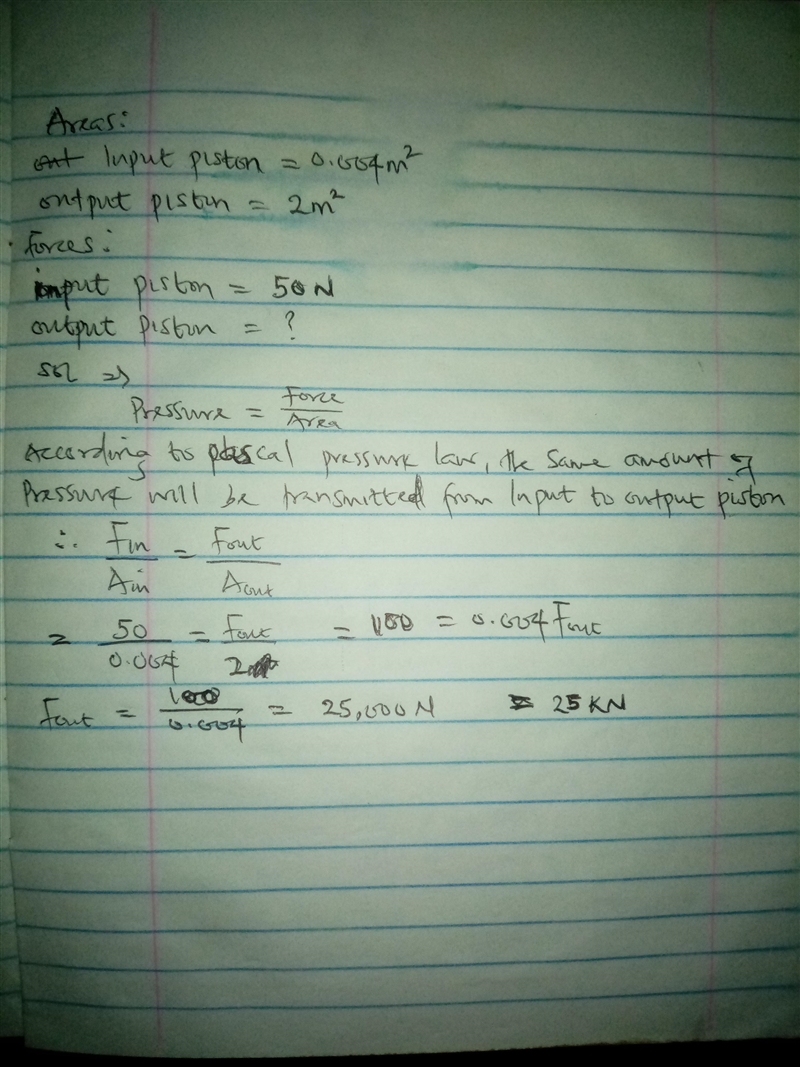 Areas:
Input piston = 0.004m²
output piston = 2m²
Forces:
input piston = 50N
output piston = ?
sol ⇒
Pressure = Force/Area
According to pascal pressure law, the same amount of
Pressure will be transmitted from Input to output piston
∴ Fin/Ain = Fout/Aout
= 50/0.004 = Fout/2 = 100 = 0.004 Fout
Fout = 100/0.004 = 25,000N = 25KN